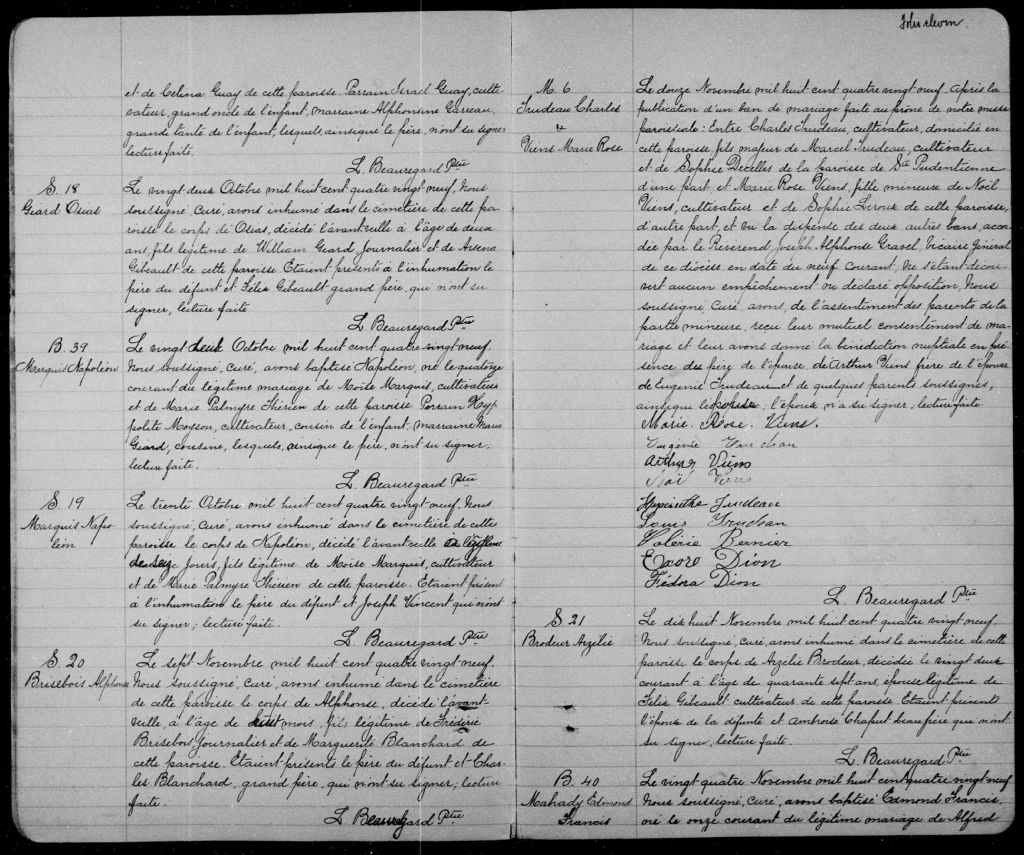 et de Celina Guay de cette paroisse. Parrain Israel Guay, culti
vateur, grand oncle de l'enfant, marraine Alphonsine Garreau,
grande tante de l'enfant, lesquels, ainsi que le père, n'ont su signer
lecture faite.
L. Beauregard Ptre
S. 18
Giard Osias
Le vingt deux Octobre mil huit cent quatre vingt neuf, Nous
soussigné Curé, avons inhumé dans le cimetière de cette pa
roisse le corps de Osias, décédé l'avant veille à l'âge de deux
ans, fils légitime de William Giard, Journalier et de Arsena
Gibeault de cette paroisse. Etaient présents à l'inhumation le
père du défunt et Félix Gibeault grand père, qui n'ont su
signer, lecture faite
L. Beauregard Ptre
B. 39
Marquis Napoléon
Le vingt deux Octobre mil huit cent quatre vingt neuf,
Nous soussigné, Curé, avons baptisé Napoléon, né le quatorze
courant du légitime mariage de Moïse Marquis, cultivateur
et de Marie Palmyre Thérien de cette paroisse Parrain Hyp
polite Moyson, cultivateur, cousin de l'enfant; marraine Marie
Giard, cousine, lesquels, ainsi que le père, n'ont su signer.
lecture faite.
L. Beauregard Ptre
S. 19
Marquis Napo
léon
Le trente Octobre mil huit cent quatre vingt neuf, Nous
soussigné, Curé, avons inhumé dans le cimetière de cette
paroisse le corps de Napoléon, décédé l'avant veille
de seize jours, fils légitime de Moïse Marquis, cultivateur
et de Marie Palmyre Thérien de cette paroisse. Etaient présent
à l'inhumation le père du défunt et Joseph Vincent qui n'ont
su signer; lecture faite.
L. Beauregard Ptre
S. 20
Brisebois Alphonse
Le sept Novembre mil huit cent quatre vingt neuf.
Nous soussigné, Curé, avons inhumé dans le cimetière
de cette paroisse le corps de Alphonse, décédé l'avant
veille, à l'âge de huit mois, fils légitime de Frédéric
Brisebois, journalier et de Marguerite Blanchard de
cette paroisse. Etaient présents le père du défunt et Char
les Blanchard, grand père, qui n'ont su signer; lecture
faite.
L. Beauregard Ptre
M. 6
Trudeau Charles
&
Viens Marie Rose
Le douze Novembre mil huit cent quatre vingt neuf, après la
publication d'un ban de mariage faite au prône de notre messe
paroissiale: Entre Charles Trudeau, cultivateur, domicilié en
cette paroisse, fils majeur de Marcel Trudeau, cultivateur
et de Sophie Decelles de la paroisse de Ste Pudentienne
d'une part, et Marie Rose Viens, fille mineure de Noël
Viens, cultivateur et de Sophie Leroux de cette paroisse,
d'autre part, et vu la dispense des deux autres bans, accor
dée par le Révérend Joseph Alphonse Gravel, Vicaire Général
de ce diocèse en date du neuf courant, Ne s'étant décou
vert aucun empêchement ou déclaré opposition, Nous
soussigné Curé, avons, de l'assentiment des parents de la
partie mineure, reçu leur mutuel consentement de ma
riage et leur avons donné la bénédiction nuptiale en pré
sence des père de l'épouse, de Arthur Viens frère de l'épouse
de Eugenie Trudeau et de quelques parents soussignés,
ainsi que l'épouse; l'époux n'a su signer; lecture faite
Marie. Rose. Viens.
Eugénie Trudeau
Arthur Viens
Noël Viens
Hyacinthe Trudeau
Louis Trudeau
Valérie Bernier
Dion
Fédora Dion
L. Beauregard Ptre
S. 21
Brodeur Arzélie
Le dix huit Novembre mil huit cent quatre vingt neuf.
Nous soussigné, Curé, avons inhumé dans le cimetière de cette
paroisse le corps de Arzélie Brodeur, décédée le vingt deux
courant à l'âge de quarante sept ans, épouse légitime de
Félix Gibeault cultivateur de cette paroisse. Etaient présents
l'époux de la défunte et Ambroise Chaput beau frère qui n'ont
su signe, lecture faite.
L. Beauregard Ptre
B. 40
Mahady Edmond
Francis
Le vingt quatre Novembre mil huit cent quatre vingt neuf
Nous soussigné, Curé, avons baptisé Edmond Francis,
né le onze courant du légitime mariage de Alfred